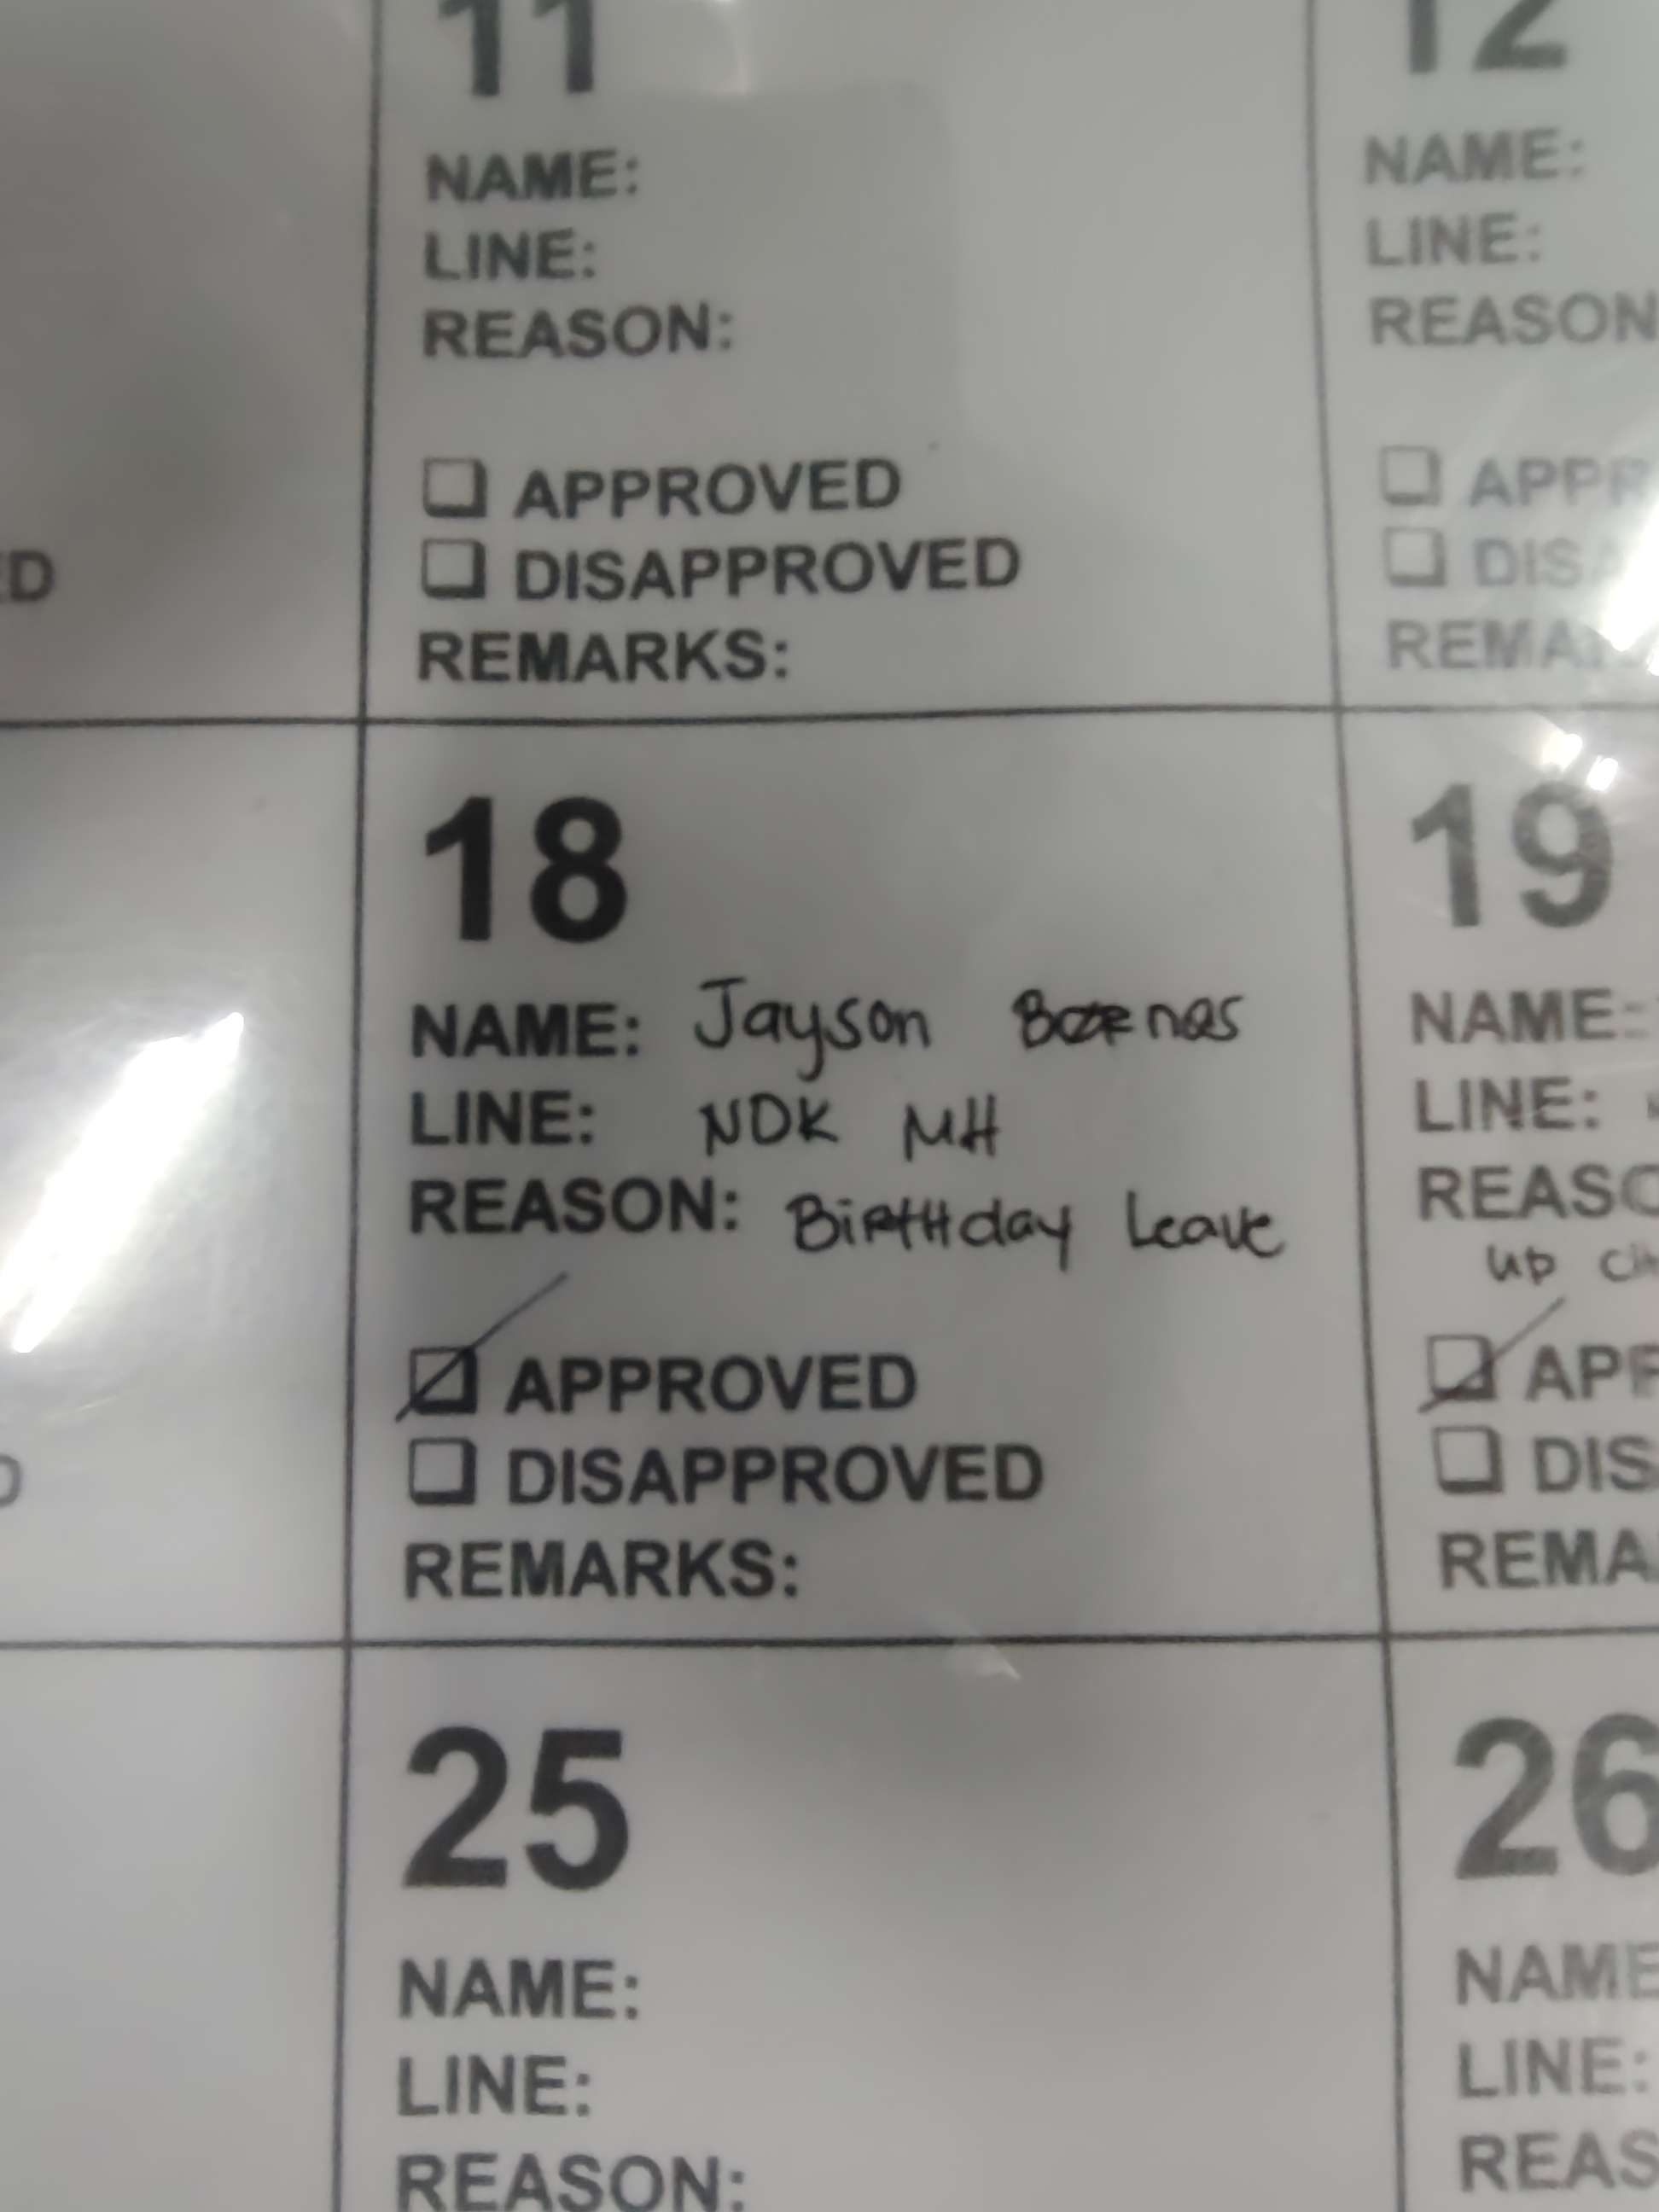 11
NAME:
LINE:
REASON:
APPROVED
DISAPPROVED
REMARKS:
12
NAME:
LINE:
REASON
APPR
DIS
REMA
ED
18
NAME: Jayson
LINE: NDK MH
REASON: BiRtHday Leave
APPROVED
DISAPPROVED
REMARKS:
19
NAME:
LINE:
REASO
up
APP
DIS
REMA
D
25
NAME:
LINE:
REASON:
26
NAME
LINE:
REAS